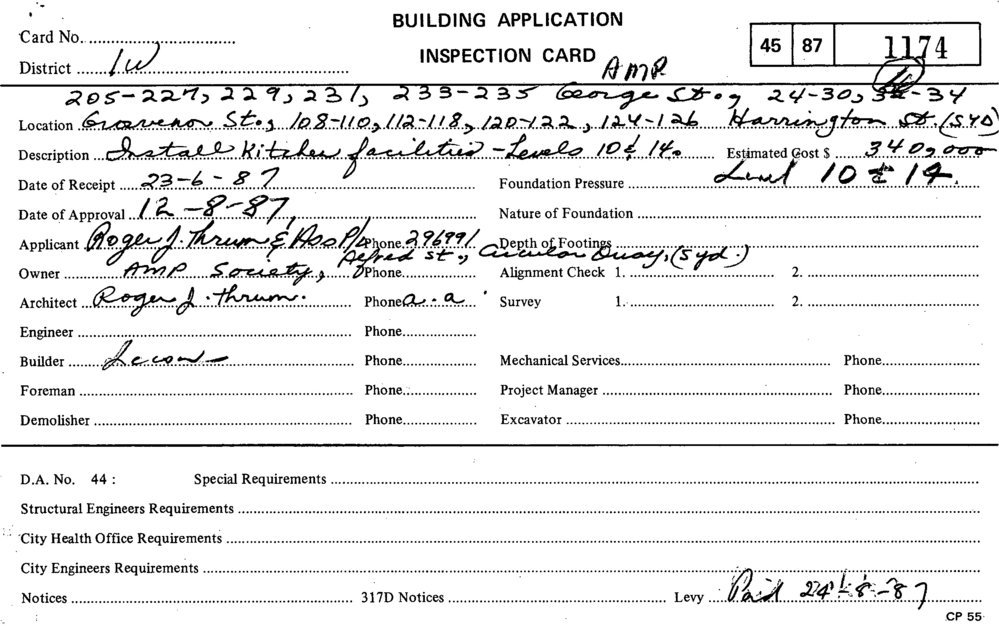 BUILDING APPLICATION
INSPECTION CARD
Card No.
45 87 1174
District 1W
AMP
205-227, 229, 231, 233-235 George St., 24-30, 32-34
Location Grosvenor St., 108-110, 112-118, 120-122, 124-126 Harrington St. (SYD)
Description Install Kitchen facilities - Levels 10 & 14. Estimated Cost $ 340,000
Date of Receipt 23-6-87 Foundation Pressure Level 10 & 14.
Date of Approval 12-8-87, Nature of Foundation
Applicant Roger J. Thrum & Ass P/L Phone 296991 Depth of Footings
Alfred St., Circular Quay, (Syd.)
Owner AMP Society, Phone Alignment Check 1. 2.
Architect Roger J. Thrum. Phone a.a. Survey 1. 2.
Engineer Phone
Builder Phone Mechanical Services Phone
Foreman Phone Project Manager Phone
Demolisher Phone Excavator Phone
D.A. No. 44 : Special Requirements
Structural Engineers Requirements
City Health Office Requirements
City Engineers Requirements
Notices 317D Notices Levy Paid 24-8-87
CP 55